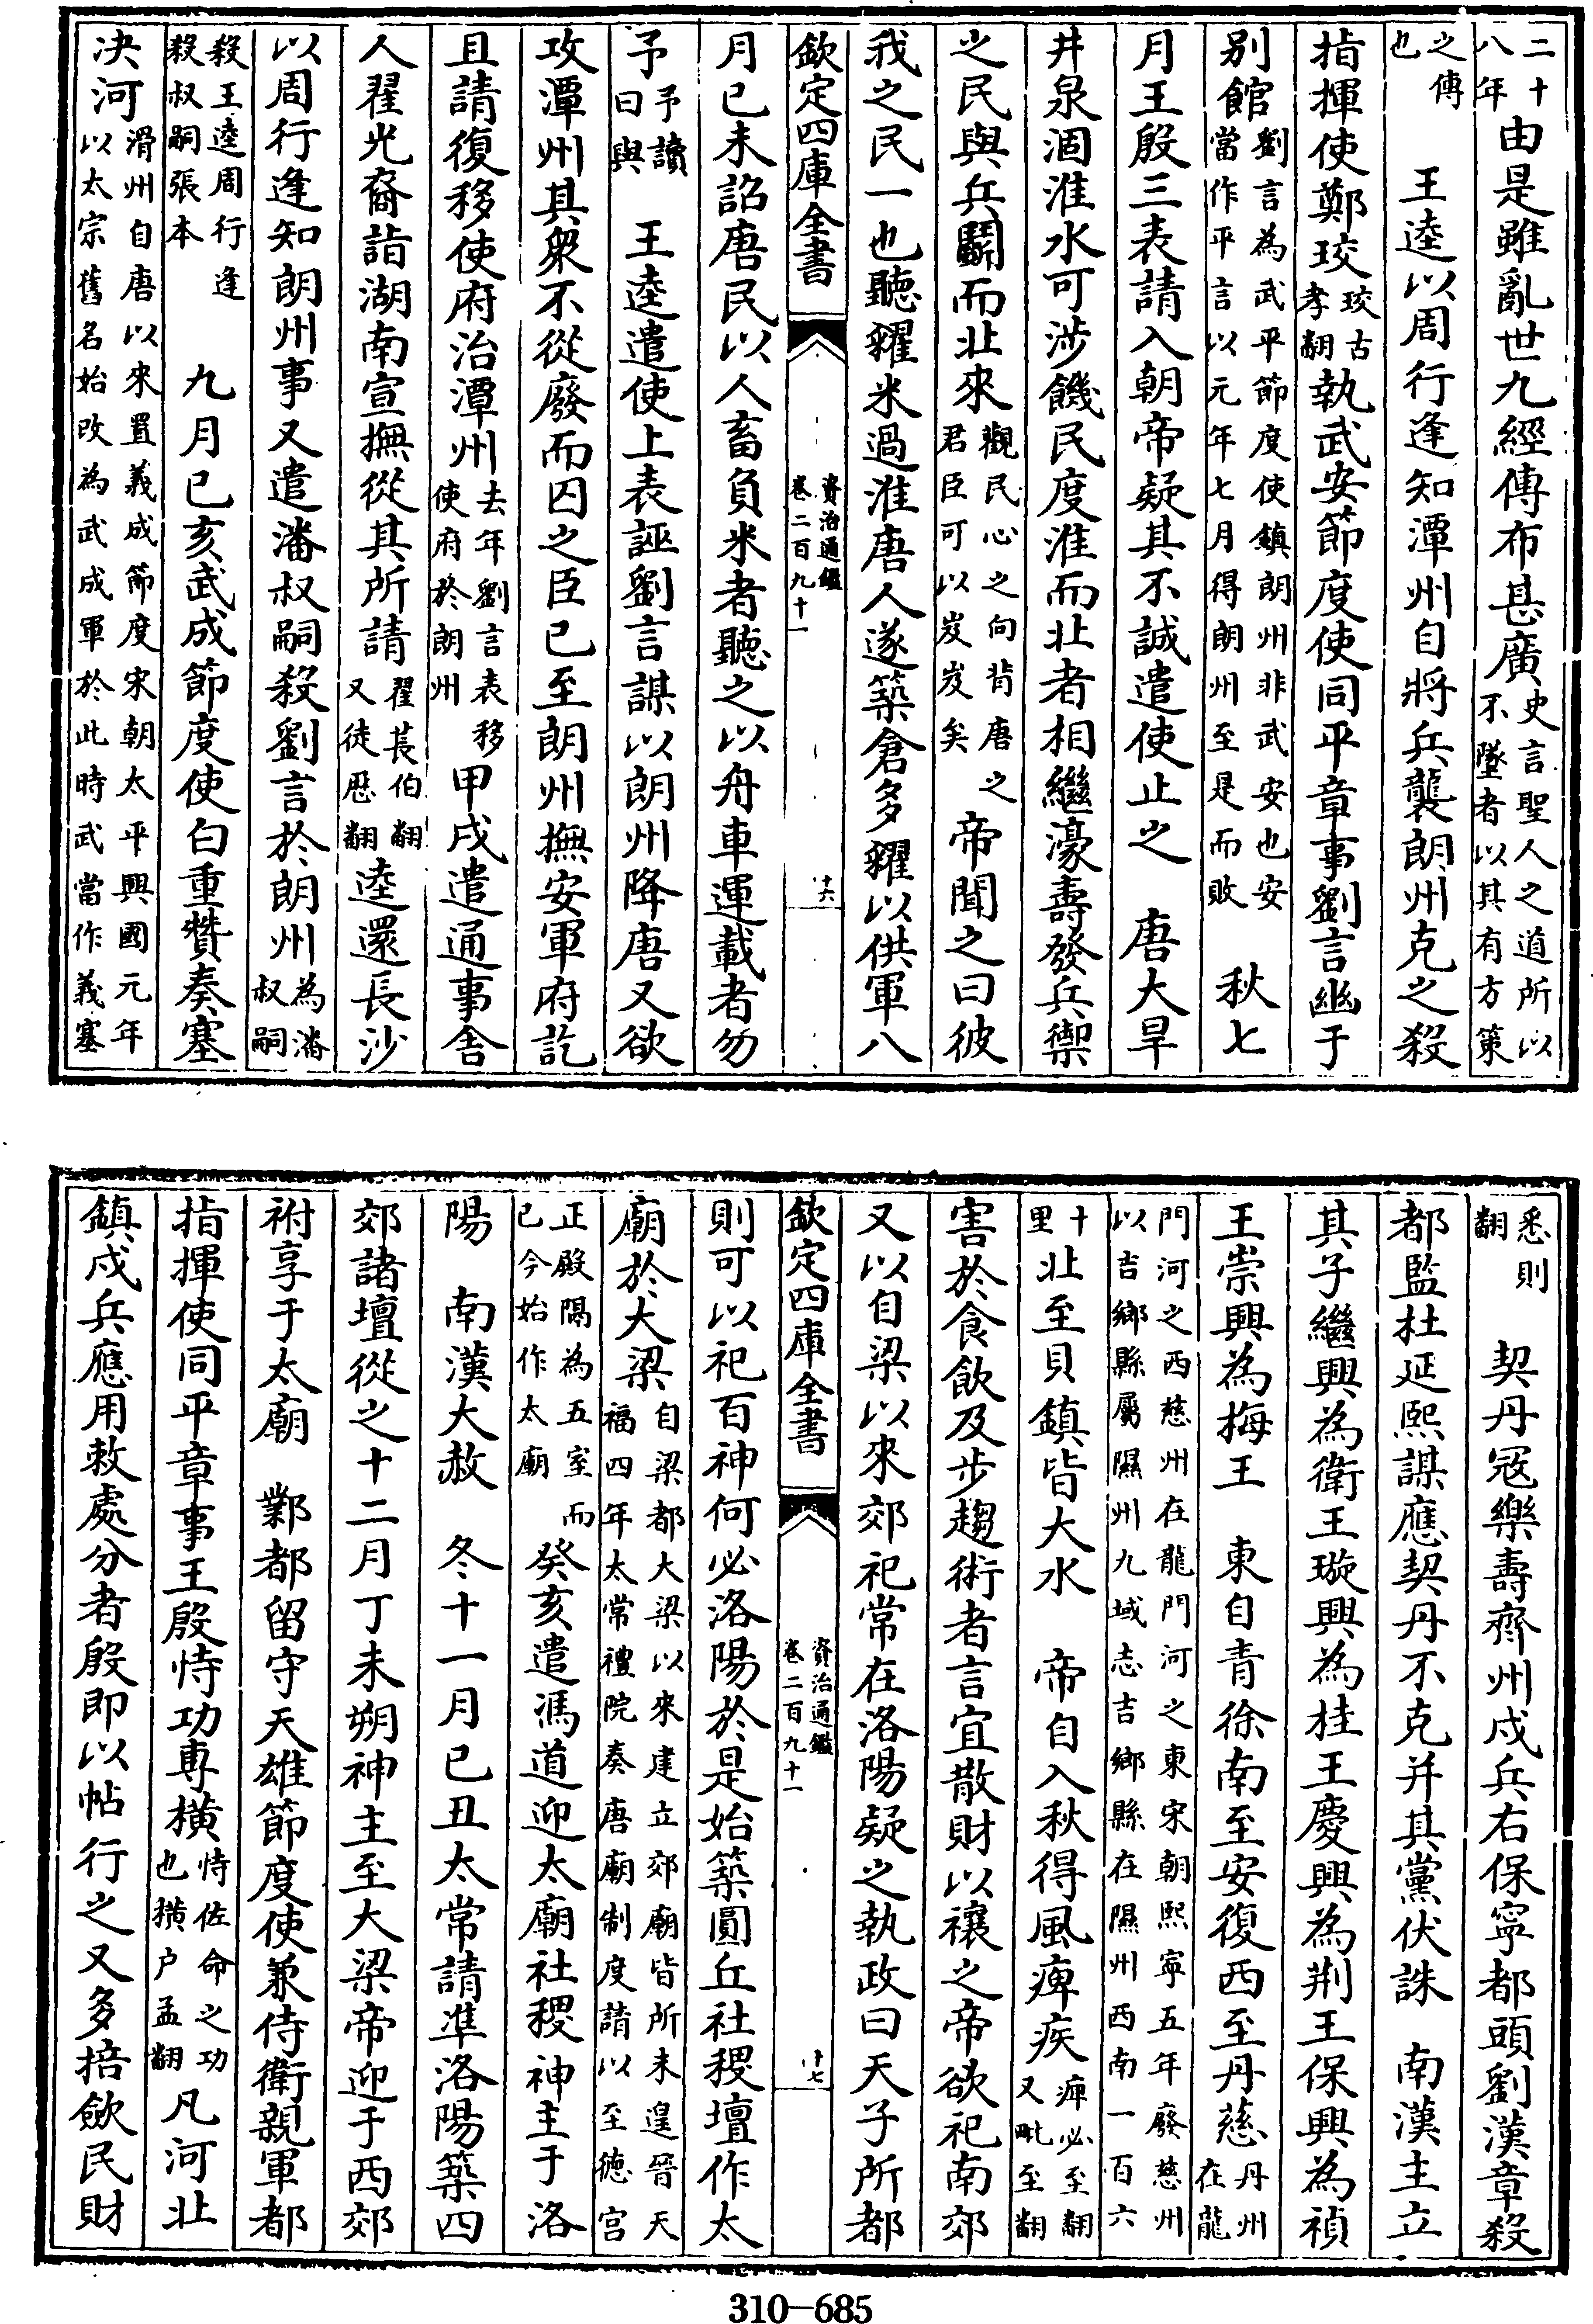 二十八年由是雖亂世九經傳布甚廣史言聖人之道所以不墜者以其有方策
之傳也　王逵以周行逢知潭州自將兵襲朗州克之殺
指揮使鄭珓珓古孝翻執武安節度使同平章事劉言幽于
别館劉言為武平節度使鎮朗州非武安也安當作平言以元年七月得朗州至是而敗　秋七
月王殷三表請入朝帝疑其不誠遣使止之　唐大旱
井泉涸淮水可涉饑民度淮而北者相繼濠壽發兵禦
之民與兵鬭而北來觀民心之向背唐之君臣可以岌岌矣　帝聞之曰彼
我之民一也聽糴米過淮唐人遂築倉多糴以供軍八
欽定四庫全書
資治通鑑
卷二百九十一
十六
月已未詔唐民以人畜負米者聽之以舟車運載者勿
予予讀曰與　王逵遣使上表誣劉言謀以朗州降唐又欲
攻潭州其衆不從廢而囚之臣已至朗州撫安軍府訖
且請復移使府治潭州去年劉言表移使府於朗州　甲戍遣通事舍
人翟光裔詣湖南宣撫從其所請翟萇伯翻又徒歷翻　逵還長沙
以周行逢知朗州事又遣潘叔嗣殺劉言於朗州為潘叔嗣
殺王逵周行逢殺叔嗣張本　九月已亥武成節度使白重贊奏塞
决河滑州自唐以來置義成節度宋朝太平興國元年以太宗舊名始改為武成軍於此時武當作義塞
悉則翻　契丹冦樂壽齊州戍兵右保寧都頭劉漢章殺
都監杜延熙謀應契丹不克并其黨伏誅　南漢主立
其子繼興為衛王璇興為桂王慶興為荆王保興為禎
王崇興為梅王　東自青徐南至安復西至丹慈丹州在龍
門河之西慈州在龍門河之東宋朝熙寧五年廢慈州以吉鄉縣屬隰州九域志吉鄉縣在隰州西南一百六
十里北至貝鎮皆大水　帝自入秋得風痺疾痺必至翻又毗至翻
害於食飲及步趨術者言宜散財以禳之帝欲祀南郊
又以自梁以來郊祀常在洛陽疑之執政曰天子所都
欽定四庫全書
資治通鑑
卷二百九十一
十七
則可以祀百神何必洛陽於是始築圓丘社稷壇作太
廟於大梁自梁都大梁以來建立郊廟皆所未遑晉天福四年太常禮院奏唐廟制度請以至德宫
正殿隔為五室而已今始作太廟　癸亥遣馮道迎太廟社稷神主于洛
陽　南漢大赦　冬十一月已丑太常請準洛陽築四
郊諸壇從之十二月丁未朔神主至大梁帝迎于西郊
祔享于太廟　鄴都留守天雄節度使兼侍衛親軍都
指揮使同平章事王殷恃功專横恃佐命之功也横户孟翻凡河北
鎮戍兵應用敕處分者殷即以帖行之又多掊斂民財
310—685